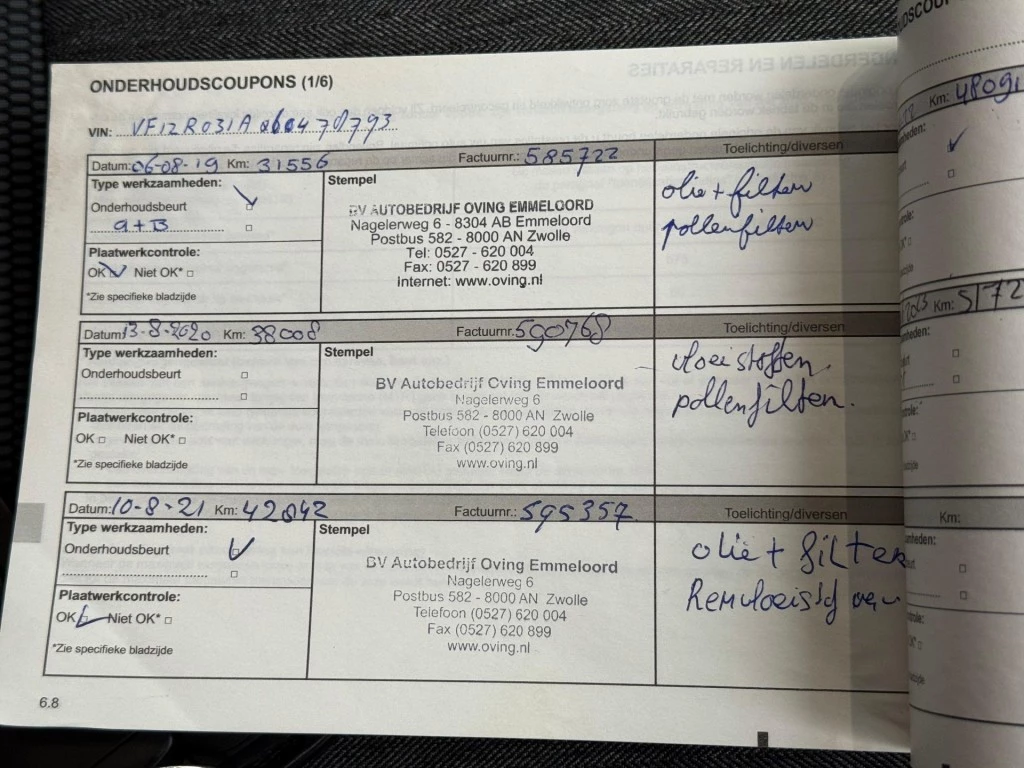 ONDERHOUDSCOUPONS (1/6)
VIN: VF12R031A
Datum: 06-08-19 Km: 31556 Factuurnr.: 585722 Toelichting/diversen
Type werkzaamheden:
Onderhoudsbeurt
a+B
Plaatwerkcontrole:
OK Niet OK*
*Zie specifieke bladzijde
Stempel
BV AUTOBEDRIJF OVING EMMELOORD
Nagelerweg 6 - 8304 AB Emmeloord
Postbus 582 - 8000 AN Zwolle
Tel: 0527 - 620 004
Fax: 0527 - 620 899
Internet: www.oving.nl
olie + filter
pollenfilter
Datum: 13-8-2020 Km: 38008 Factuurnr.: 590768 Toelichting/diversen
Type werkzaamheden:
Onderhoudsbeurt
Plaatwerkcontrole:
OK Niet OK*
*Zie specifieke bladzijde
Stempel
BV Autobedrijf Oving Emmeloord
Nagelerweg 6
Postbus 582 - 8000 AN Zwolle
Telefoon (0527) 620 004
Fax (0527) 620 899
www.oving.nl
vloeistoffen.
pollenfilter.
Datum: 10-8-21 Km: 42842 Factuurnr.: 595357 Toelichting/diversen
Type werkzaamheden:
Onderhoudsbeurt
Plaatwerkcontrole:
OK Niet OK*
*Zie specifieke bladzijde
Stempel
BV Autobedrijf Oving Emmeloord
Nagelerweg 6
Postbus 582 - 8000 AN Zwolle
Telefoon (0527) 620 004
Fax (0527) 620 899
www.oving.nl
olie + filter
Remvloeistof
6.8
Km: 48091
Km: 5172
Km: